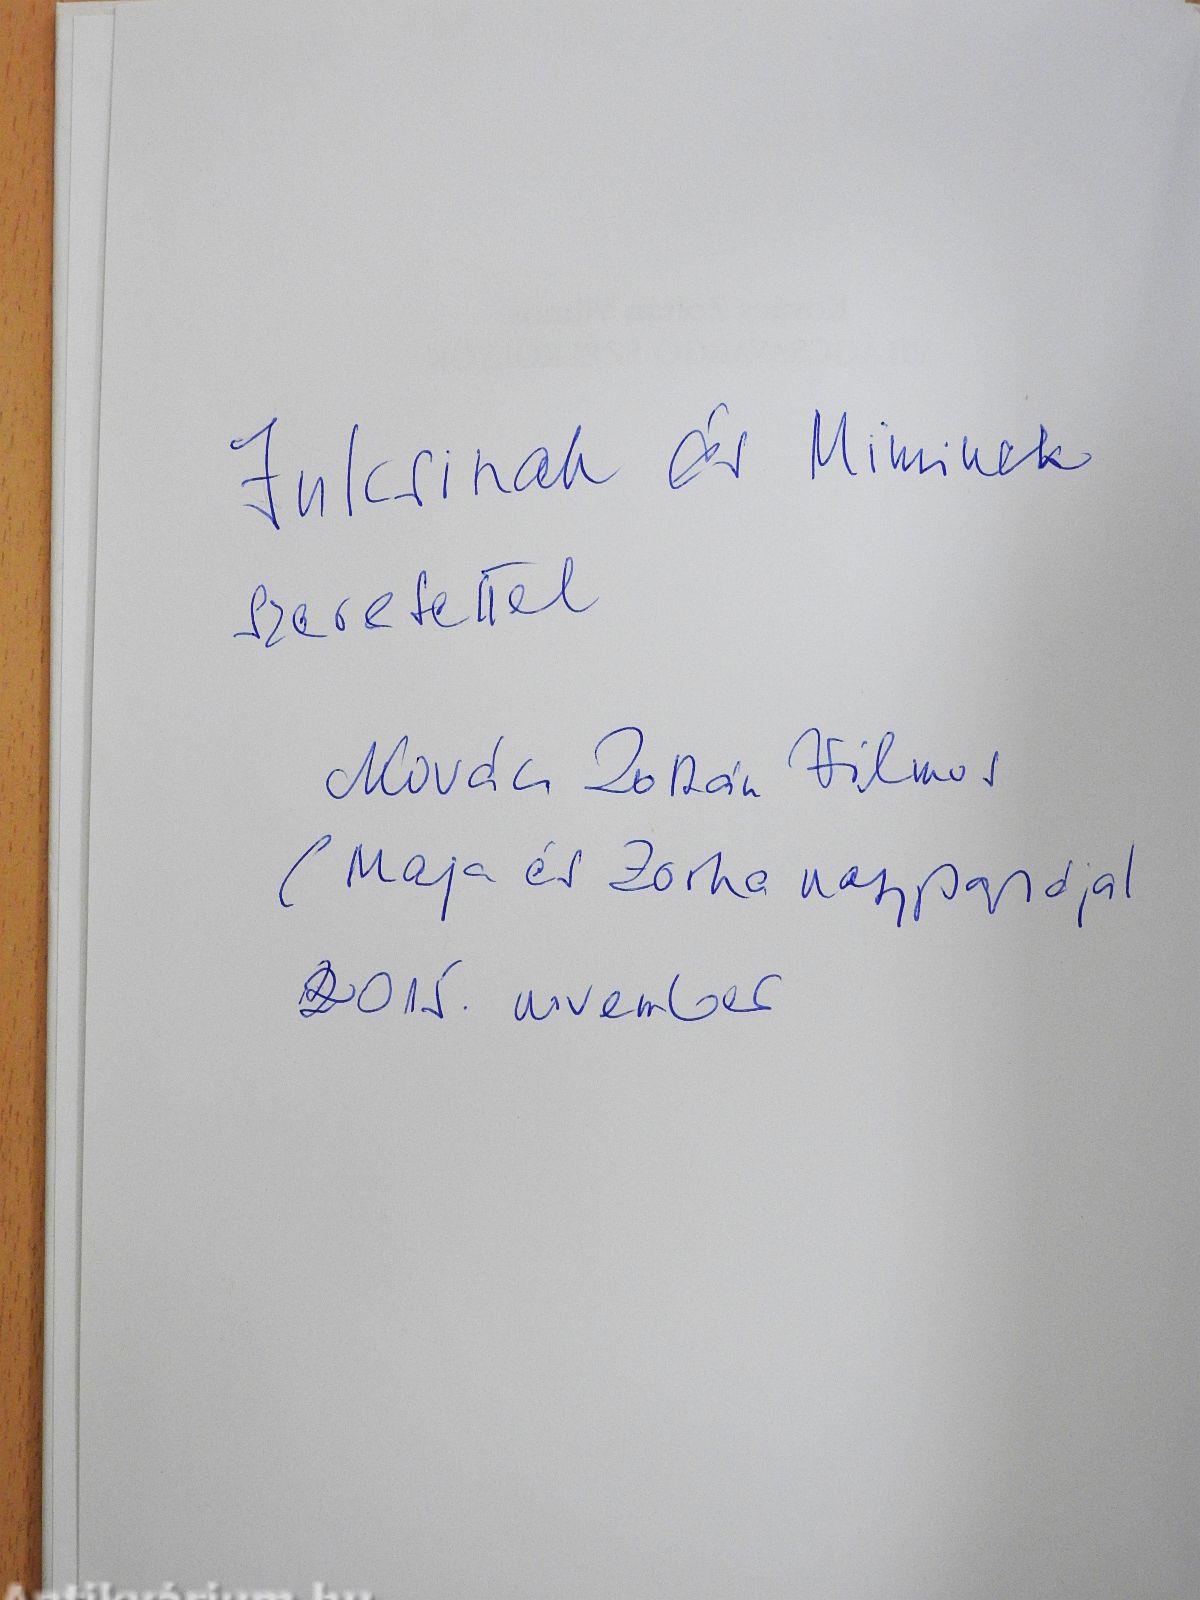 Julcsinak és Miminek
szeretettel
Kovács Zoltán Vilmos
(Maja és Zorka nagypapája)
2015. november
Antikvárium.hu